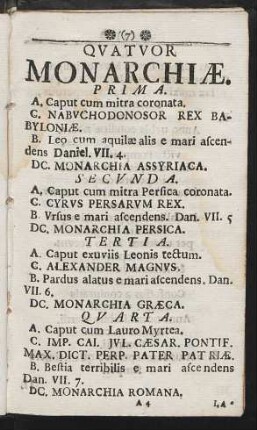 ❀ (7) ❀
QVATVOR
MONARCHIÆ.
PRIMA.
A. Caput cum mitra coronata.
C. NABVCHODONOSOR REX BA-
BYLONIÆ.
B. Leo cum aquilæ alis e mari aſcen-
dens Daniel. VII. 4.
DC. MONARCHIA ASSYRIACA.
SECVNDA.
A, Caput cum mitra Perſica coronata.
C. CYRVS PERSARVM REX.
B. Vrſus e mari aſcendens. Dan. VII. 5
DC. MONARCHIA PERSICA.
TERTIA.
A. Caput exuviis Leonis tectum.
C. ALEXANDER MAGNVS.
B. Pardus alatus e mari aſcendens. Dan.
VII. 6.
DC. MONARCHIA GRÆCA.
QVARTA.
A. Caput cum Lauro Myrtea.
C. IMP. CAI. JVL. CÆSAR. PONTIF.
MAX. DICT. PERP. PATER PATRIÆ.
B. Beſtia terribilis e mari aſcendens
Dan. VII. 7.
DC. MONARCHIA ROMANA.
A 4